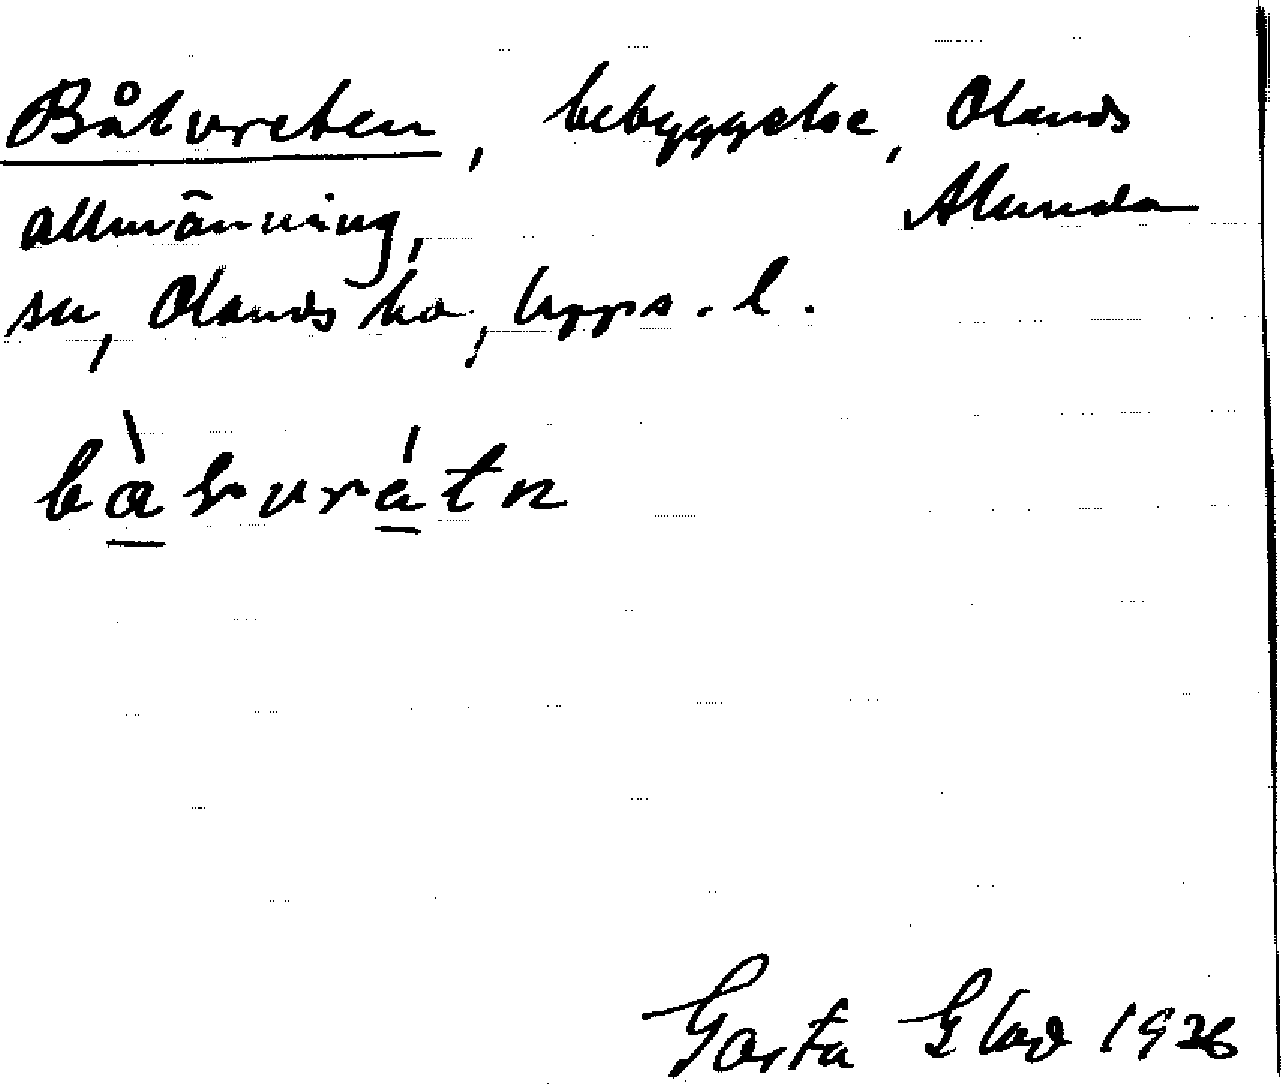 Bålvreten, bebyggelse, Olands
allmänning, Alunda
sn, Olands hd, Upps. l.
Garta Glad 1926